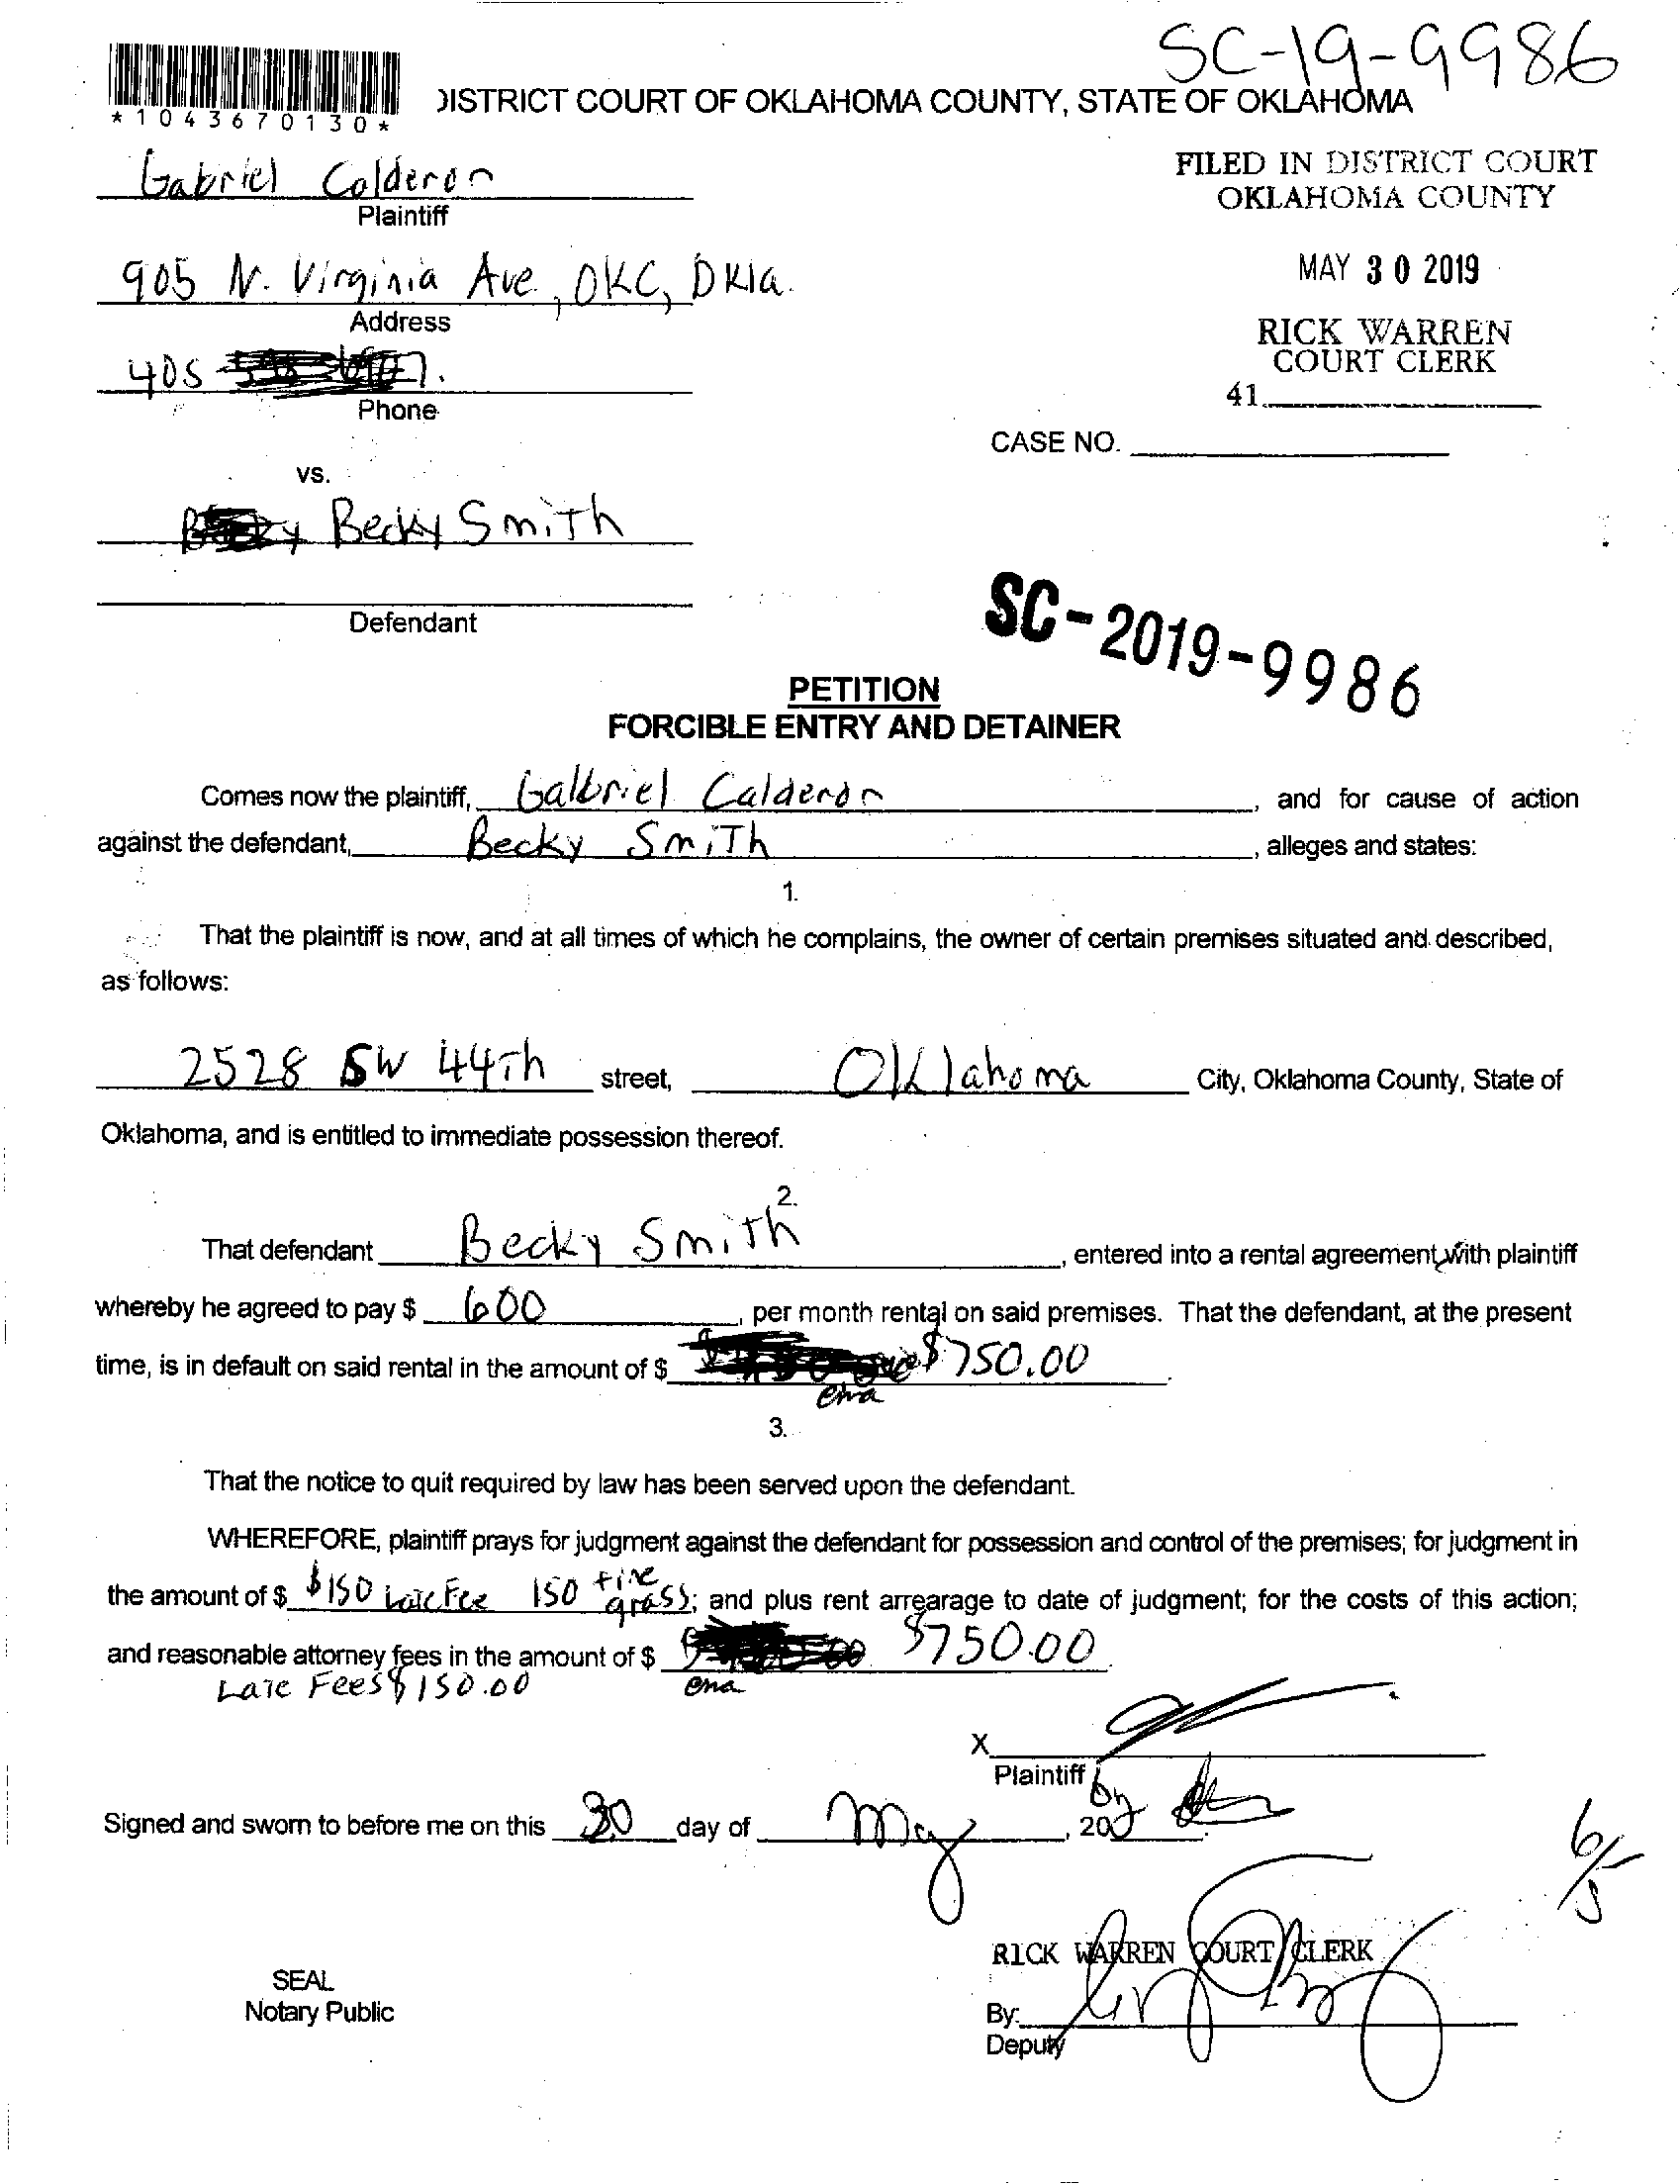 SC-19-9986
*1043670130*
DISTRICT COURT OF OKLAHOMA COUNTY, STATE OF OKLAHOMA
Gabriel Calderon
Plaintiff
FILED IN DISTRICT COURT
OKLAHOMA COUNTY
905 N. Virginia Ave, OKC, Okla.
Address
MAY 30 2019
RICK WARREN
COURT CLERK
405
Phone
41
CASE NO.
vs.
Becky Smith
Defendant
SC-2019-9986
PETITION
FORCIBLE ENTRY AND DETAINER
Comes now the plaintiff, Galbriel Calderon, and for cause of action
against the defendant, Becky Smith, alleges and states:
1.
That the plaintiff is now, and at all times of which he complains, the owner of certain premises situated and described,
as follows:
2528 SW 44Th street, Oklahoma City, Oklahoma County, State of
Oklahoma, and is entitled to immediate possession thereof.
2.
That defendant Becky Smith, entered into a rental agreement with plaintiff
whereby he agreed to pay $ 600, per month rental on said premises. That the defendant, at the present
time, is in default on said rental in the amount of $ $750.00.
3.
That the notice to quit required by law has been served upon the defendant.
WHEREFORE, plaintiff prays for judgment against the defendant for possession and control of the premises; for judgment in
the amount of $ $150 Late Fee 150 fine grass; and plus rent arrearage to date of judgment; for the costs of this action;
and reasonable attorney fees in the amount of $ $750.00.
Late Fees $150.00
X
Plaintiff
by
Signed and sworn to before me on this 30 day of May, 20
6/5
RICK WARREN COURT CLERK
SEAL
Notary Public
By:
Deputy